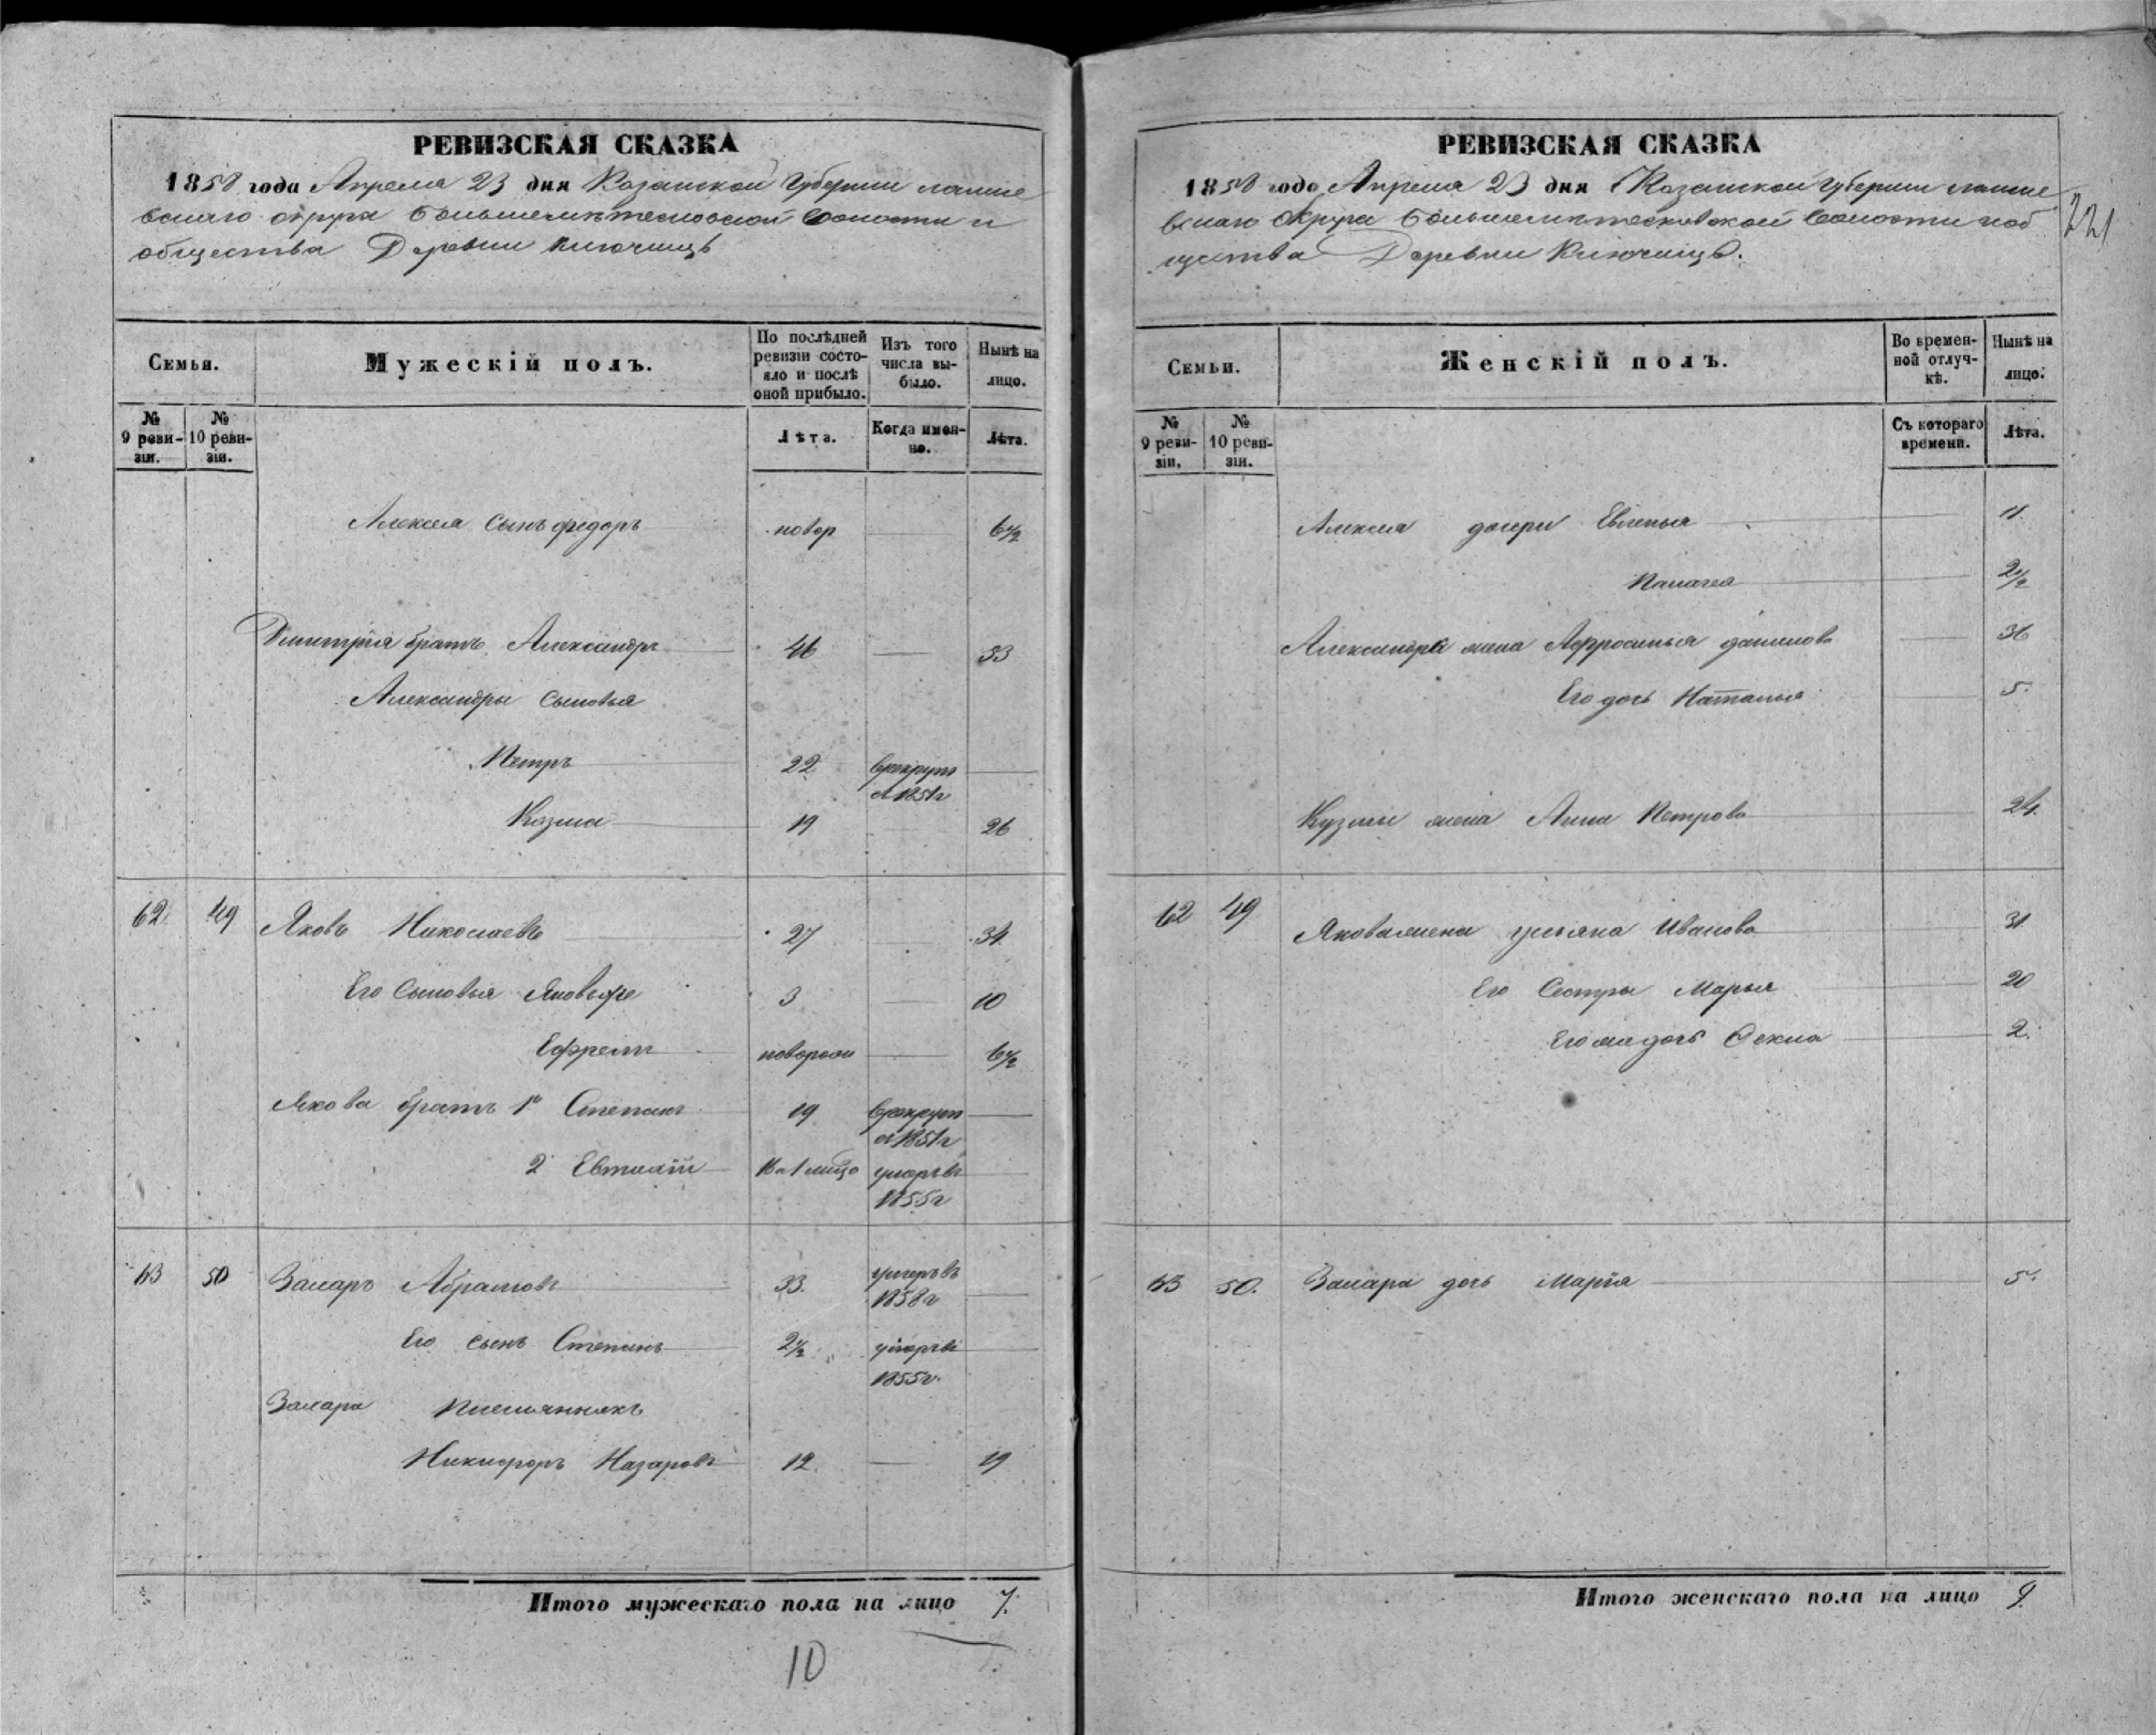 РЕВИЗСКАЯ СКАЗКА
1858 года Апреля 23 дня Казанской Губернии лаише
вскаго округа волости и
общества Деревни Ключищъ
Семьи.
Мужескій полъ.
По послѣдней ревизіи состояло и послѣ оной прибыло.
Изъ того числа выбыло.
Нынѣ на лицо.
№ 9 ревизіи.
№ 10 ревизіи.
Лѣта.
Когда именно.
Лѣта.
Алексея Сынъ федоръ новор 6½
Дмитрія братъ Александръ 46 53
Александры сыновья
Петръ 22 врекруты
в 1851г
Козма 19 26
62 49 Яковъ Николаевъ 27 34
Его Сыновья 3 10
Ефремъ новорож 6½
Якова братъ 1й Степанъ 19 врекруты
в 1851г
2 16 умеръ въ
1855г
63 50 Захаръ Абрамовъ 33. умеръ въ
1858г
Его сынъ Степанъ 2½ умеръ въ
1855г.
Захара племянникъ
Никифоръ Назаровъ 12. 19
Итого мужескаго пола на лицо 7.
10
221
РЕВИЗСКАЯ СКАЗКА
1858 года Апреля 23 дня Казанской Губернии лаише
вскаго Округа волости иоб
щества Деревни Ключищъ.
Семьи.
Женскій полъ.
Во временной отлучкѣ.
Нынѣ на лицо.
№ 9 ревизіи.
№ 10 ревизіи.
Съ котораго времени.
Лѣта.
Алексея дочери Евгенья 11.
Палагея 2½
Александра жена Афросинья данилова 36
Его дочь Наталья 5.
Кузьмы жена Анна Петрова 24.
62 49 Якова жена ульяна Иванова 31
Его Сестра Марья 20
Его же дочь Фекла 2.
63 50. Захара дочь Марія 5.
Итого женскаго пола на лицо 9.